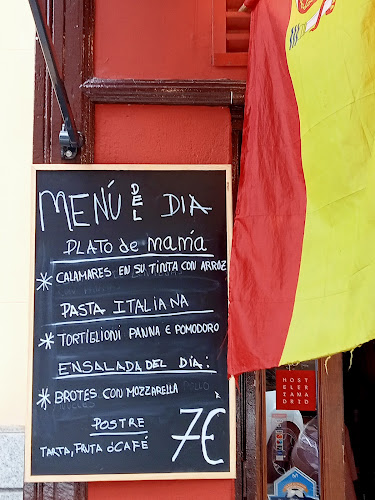 MENÚ DEL DIA
PLATO de mamía
* CALAMARES EN SU TINTA CON ARROZ
PASTA ITALIANA
* TORTIGLIONI PANNA E POMODORO
ENSALADA DEL DIA:
* BROTES CON MOZZARELLA
POSTRE
TARTA, FRUTA ÓCAFÉ
7€
HOST
ELER
ÍAMA
DRID